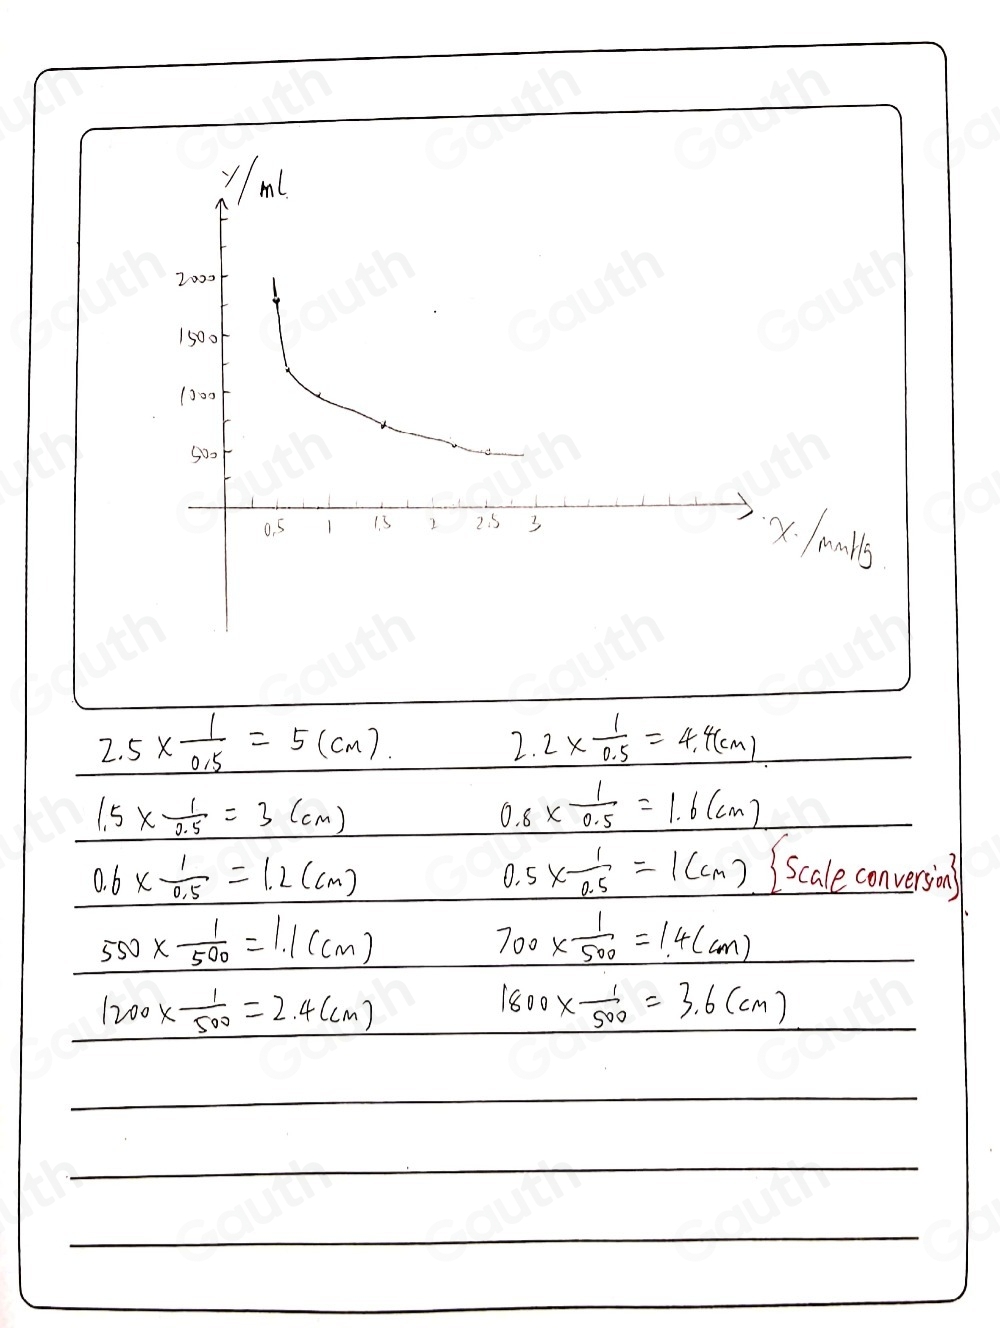 y/ml
2000
1500
1000
500
0.5 1 1.5 2 2.5 3
x/mmHg
2.5 × 1/0.5 = 5 (cm). 2.2 × 1/0.5 = 4.4 (cm)
1.5 × 1/0.5 = 3 (cm) 0.8 × 1/0.5 = 1.6 (cm)
0.6 × 1/0.5 = 1.2 (cm) 0.5 × 1/0.5 = 1 (cm) {Scale conversion}
550 × 1/500 = 1.1 (cm) 700 × 1/500 = 1.4 (cm)
1200 × 1/500 = 2.4 (cm) 1800 × 1/500 = 3.6 (cm)
Gauth